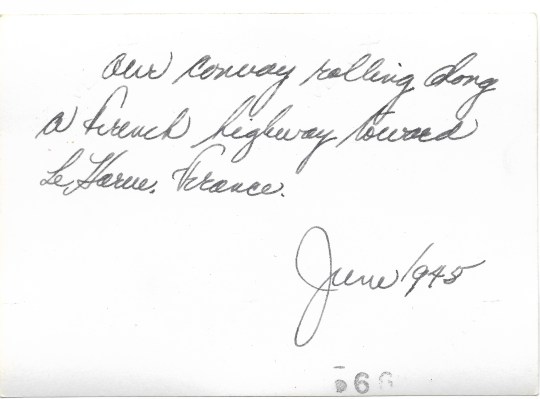 Our convoy rolling along
a French highway toward
Le Harve, France.
June 1945
66